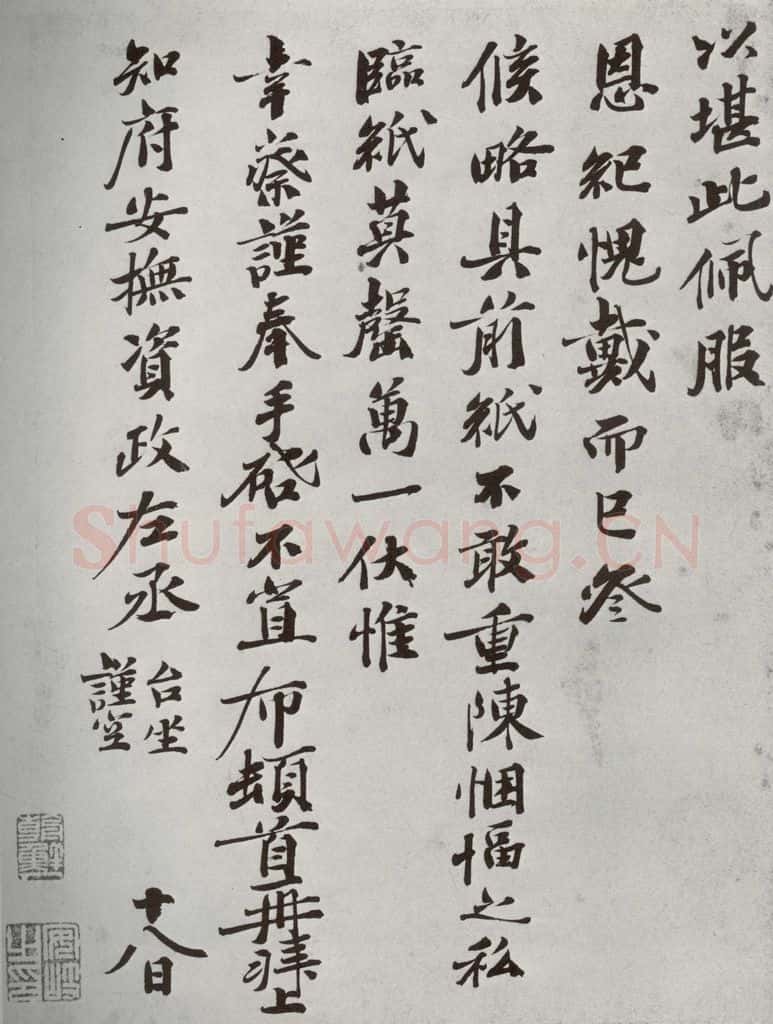 以堪此佩服
恩紀愧戴而已參
候略具前紙不敢重陳悃愊之私
臨紙莫罄萬一伏惟
幸察謹奉手啓不宣布頓首再拜上
知府安撫資政左丞台坐
謹空
十八日
Shufawang.CN